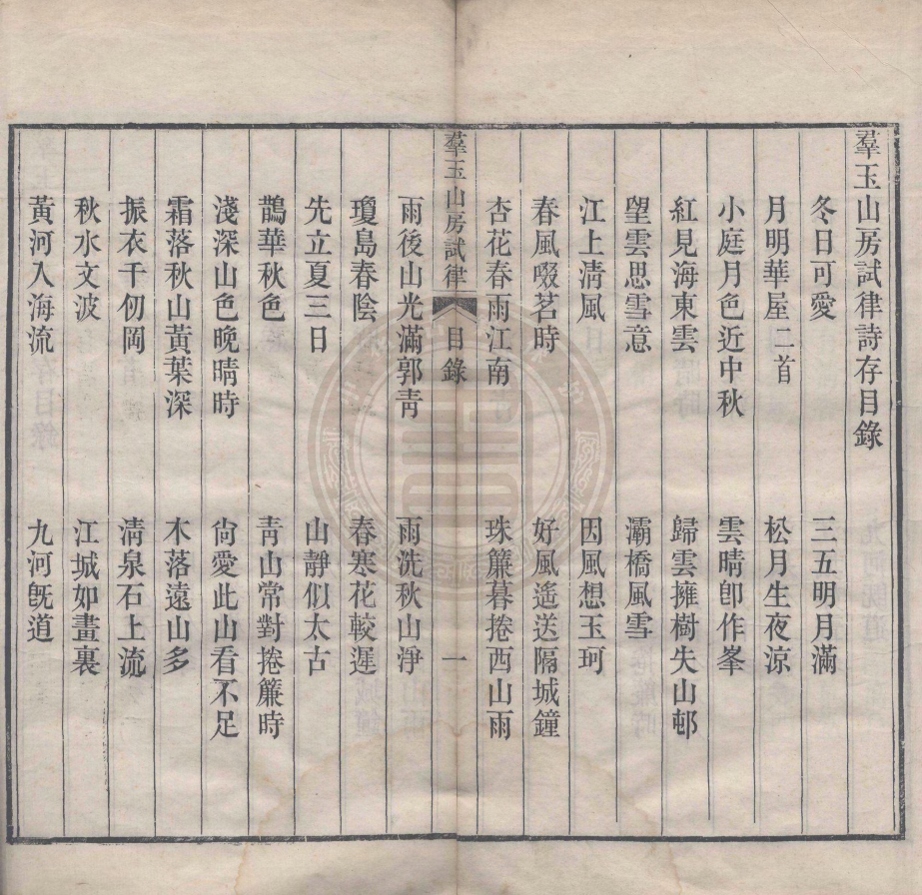 羣玉山房試律詩存目錄
冬日可愛　三五明月滿
月明華屋二首　松月生夜涼
小庭月色近中秋　雲晴卽作峯
紅見海東雲　歸雲擁樹失山邨
望雲思雪意　灞橋風雪
江上清風　因風想玉珂
春風啜茗時　好風遙送隔城鐘
杏花春雨江南　珠簾暮捲西山雨
羣玉山房試律　目錄　一
雨後山光滿郭靑　雨洗秋山淨
瓊島春陰　春寒花較遲
先立夏三日　山靜似太古
鵲華秋色　靑山常對捲簾時
淺深山色晚晴時　尙愛此山看不足
霜落秋山黃葉深　木落遠山多
振衣千仞岡　清泉石上流
秋水文波　江城如畫裏
黃河入海流　九河旣道